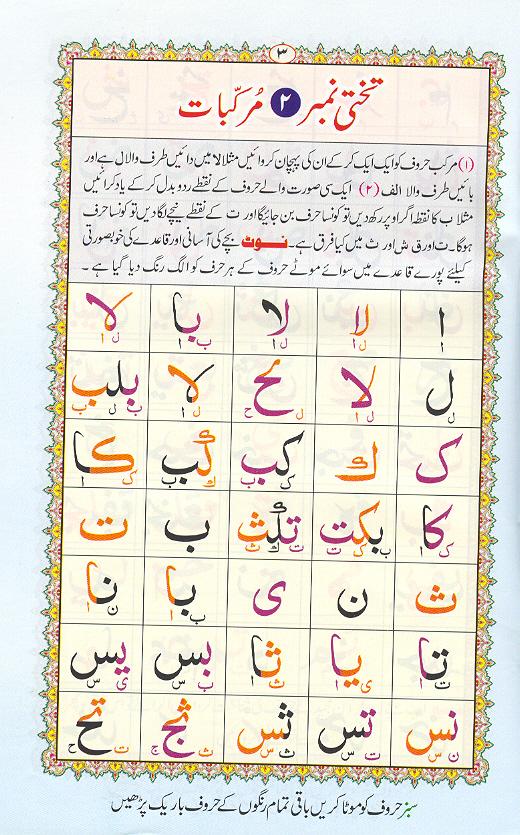 ۳
تختی نمبر ۲ مُرکّبات
(۱) مرکب حروف کو ایک ایک کر کے ان کی پہچان کروائیں مثلا لا میں دائیں طرف والا ل ہے اور
بائیں طرف والا الف (۲) ایک سی صورت والے حروف کے نقطے ردو بدل کر کے یاد کرائیں
مثلا ب کا نقطہ اگر اوپر رکھ دیں تو کونسا حرف بن جائیگا اور ت کے نقطے نیچے لگا دیں تو کونسا حرف
ہوگا۔ ت اور ق ش اور ث میں کیا فرق ہے۔ نوٹ بچے کی آسانی اور قاعدے کی خوبصورتی
کیلئے پورے قاعدے میں سوائے موٹے حروف کے ہر حرف کو الگ رنگ دیا گیا ہے ۔
ا لا لا با لا
ل لا لح لا بلب
ک ك کب كب کا
کا بکت تلث ب ت
ث ن ی با نا
تا یا ثا بس یس
نس تس ثس ثج تح
سبز حروف کو موٹا کریں باقی تمام رنگوں کے حروف باریک پڑھیں